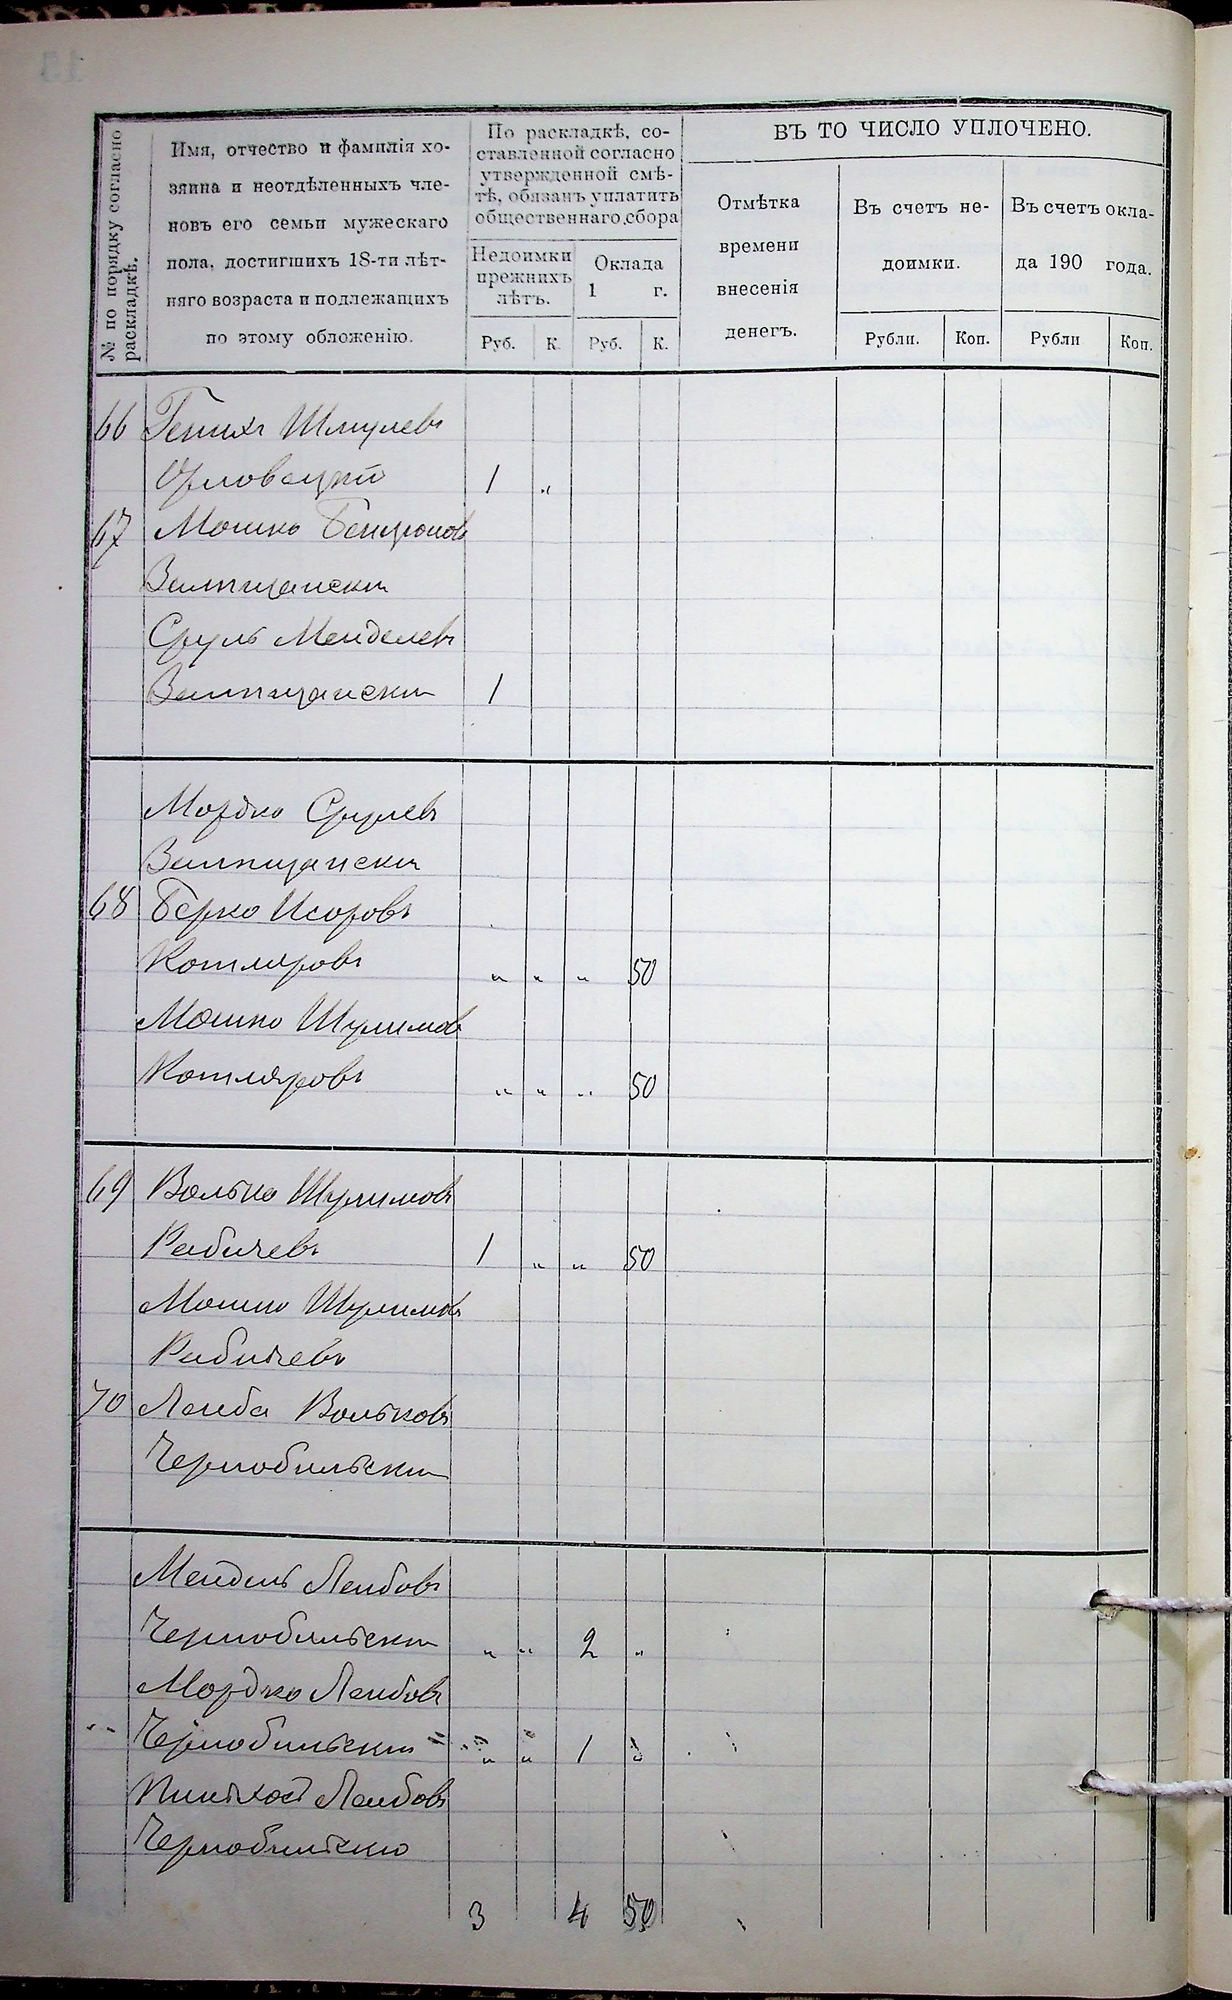 № по порядку согласно раскладкѣ.
Имя, отчество и фамилія хо-
зяина и неотдѣленныхъ чле-
новъ его семьи мужескаго
пола, достигшихъ 18-ти лѣт-
няго возраста и подлежащихъ
по этому обложенію.
По раскладкѣ, со-
ставленной согласно
утвержденной смѣ-
тѣ, обязанъ уплатить
общественнаго сбора
Недоимки
прежнихъ
лѣтъ.
Оклада
1 г.
Руб. К. Руб. К.
ВЪ ТО ЧИСЛО УПЛОЧЕНО.
Отмѣтка
времени
внесенія
денегъ.
Въ счетъ не-
доимки.
Рубли. Коп.
Въ счетъ окла-
да 190 года.
Рубли Коп.
66 Генихъ Шмулевъ
1 "
67 Мошко
Сруль Менделевъ
1
Мордко Срулевъ
68 Берко
Котляровъ " " " 50
Мошко Шулимов
Котляровъ " " " 50
69 Волько Шулимовъ
Рабичевъ 1 " " 50
Мошко Шулимовъ
Рабичевъ
70 Лейба Вольковъ
Чернобильский
Мендель Лейбовъ
Чернобильский " " 2 "
Мордко Лейбовъ
Чернобильский " " 1 "
Лейбовъ
Чернобильский
3 4 50